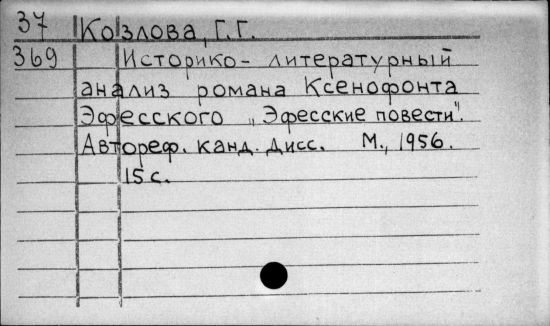 37 Козлова, Г.Г.
369 Историко- литературный
анализ романа Ксенофонта
Эфесского „Эфесские повести".
Автореф. канд. дисс. М., 1956.
15 с.